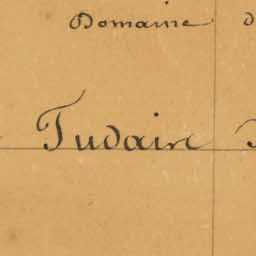 Domaine d
Tudair